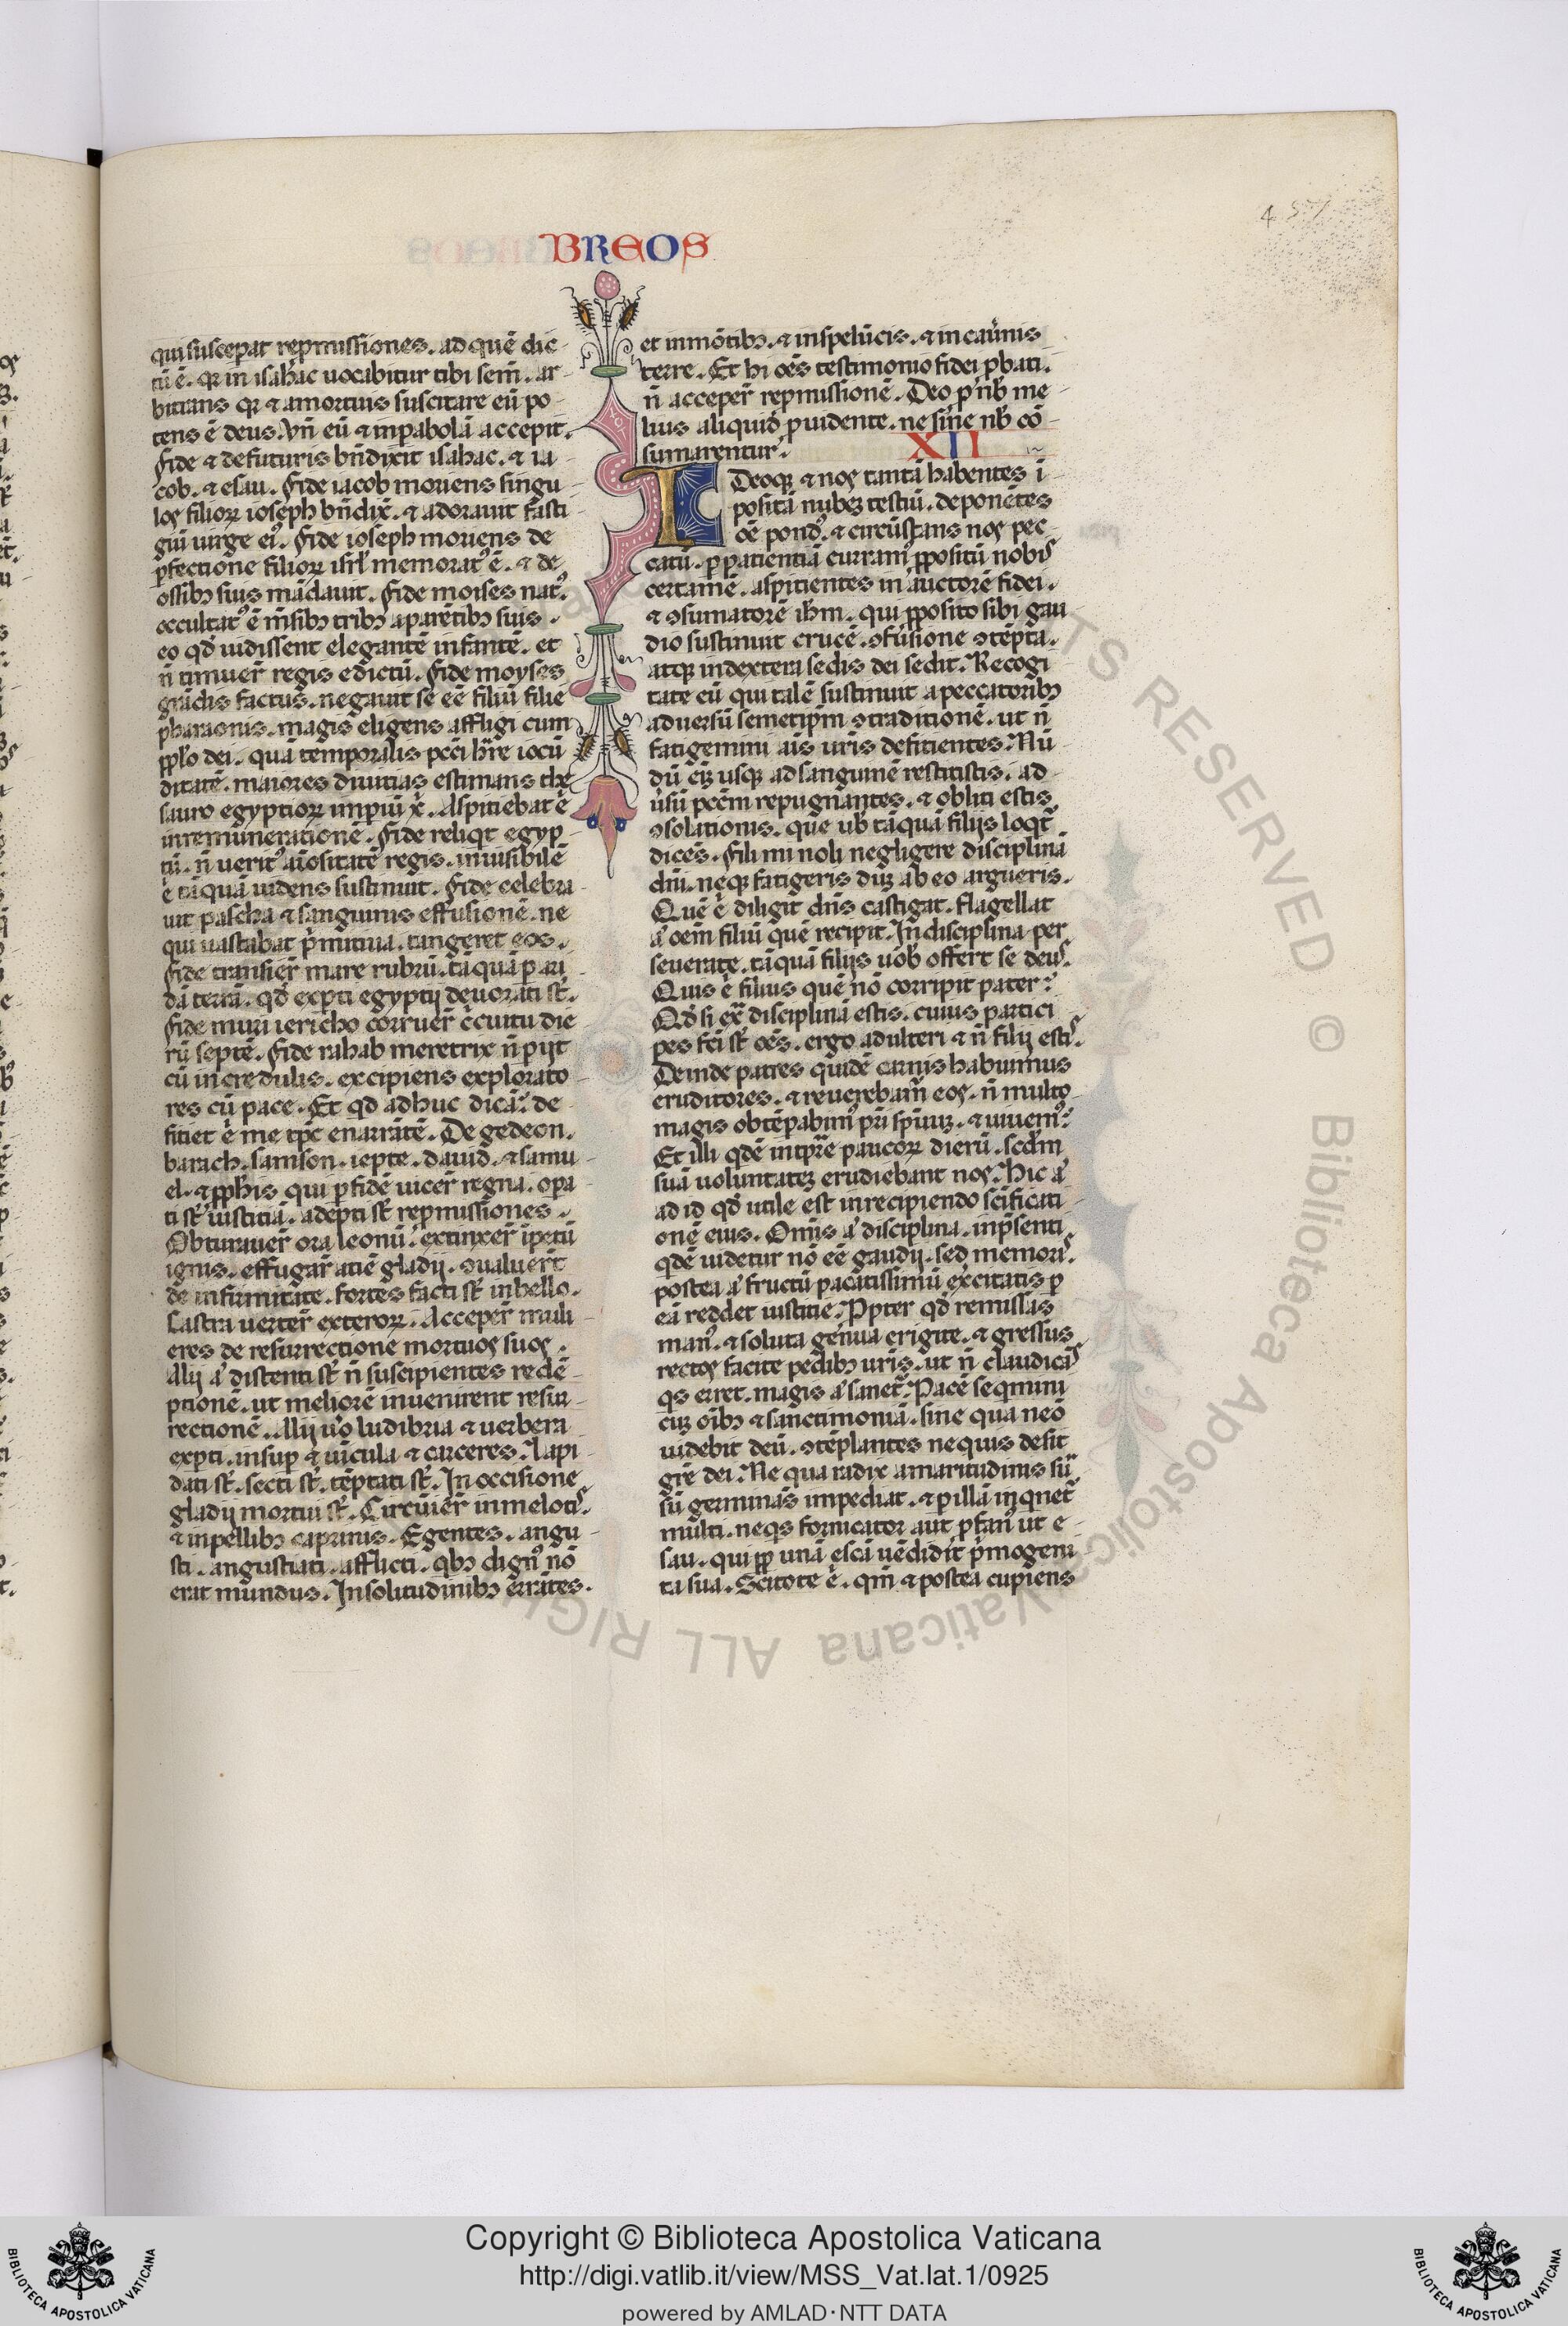 4 5 7
BREOS
qui susceperat repmissiones. ad quē dic-
tū ē. qꝛ in isahac uocabitur tibi sem̄. ar-
bitrans qꝛ ⁊ a mortuis suscitare eū po-
tens ē deus. Vn̄ eū ⁊ in pabolā accepit.
Fide ⁊ de futuris bn̄dixit isahac. ⁊ ia-
cob. ⁊ esau. Fide iacob moriens singu-
los filioꝝ ioseph bn̄dix̄. ⁊ adorauit fasti
giū uirge eiꝰ. Fide ioseph moriens de
ꝓfectione filioꝝ isrl̄ memoratꝰ ē. ⁊ de
ossibꝫ suis mādauit. Fide moises natꝰ
occultatꝰ ē m̄sibꝫ tribꝫ a parētibꝫ suis.
eo qđ uidissent elegantē infantē. et
n̄ timuer̄ regis edictū. Fide moyses
grādis factus. negauit se eē filiū filie
pharaonis. magis eligens affligi cum
pplo dei. quā temporalis pccī hr̄e iocū
ditatē. maiores diuitias estimans the
sauro egyptioꝝ imꝓiū xp̄i. Aspitiebat ē
in remunerationē. Fide reliqt egyp-
tū. n̄ ueritꝰ aīositatē regis. inuisibilē
ē tāquā uidens sustinuit. Fide celebra-
uit pascha ⁊ sanguinis effusionē. ne
qui uastabat pͥmitiua. tangeret eos.
Fide transier̄ mare rubrū. tāquā ꝑ ari
dā terrā. qđ exꝑti egyptij deuorati st̄.
Fide muri iericho corruer̄ c̄cuitu die
rū septē. Fide rahab meretrix n̄ ꝑijt
cū incredulis. excipiens explorato-
res cū pace. Et qđ adhuc dicā: de-
fitiet ē me tp̄c enarrātē. De gedeon.
barach. samson. iepte. dauid. ⁊ samu-
el. ⁊ ꝓphis qui ꝑ fidē uicer̄ regna. oꝑa
ti st̄ iustitiā. adepti st̄ repmissiones.
Obturauer̄ ora leonū. extinxer̄ īpetū
ignis. effugar̄ atiē gladij. ꝯualuer̄t
de infirmitate. fortes facti st̄ in bello.
Castra uerter̄ exteroꝝ. Acceper̄ muli-
eres de resurrectione mortuos suos.
Alij aͫ distenti st̄ n̄ suscipientes redē-
ptionē. ut meliorē inuenirent resur-
rectionē. Alij uͦo ludibria ⁊ uerbera
exꝑti. insuꝑ ⁊ uīcula ⁊ carceres. Lapi-
dati st̄. secti st̄. tēptati st̄. In occisione
gladij mortui st̄. Circuier̄ in melotis.
⁊ in pellibꝫ caprinis. Egentes. angu-
sti. angustiati. afflicti. qbꝫ dignꝰ nō
erat mundus. In solitudinibꝫ errātes.
et in mōtibꝫ. ⁊ in spelūcis. ⁊ in cau̓nis
terre. Et hi oēs testimonio fidei ꝓbati.
n̄ acceper̄ repmissionē. Deo pͥ nb̄ me
lius aliquid ꝓuidente. ne sine nb̄ cō-
sumarentur.
XII
IDeoqꝫ ⁊ nos tantā habentes ī-
positā nubeꝫ testiū. deponētes
oē pondꝰ. ⁊ circūstans nos pec-
catū. ꝑ patientiā curramꝰ ꝓpositū nobis
certamē. aspitientes in auctorē fidei.
⁊ ꝯsumatorē ih̄m. qui ꝓposito sibi gau
dio sustinuit crucē. ꝯfusione ꝯtēpta.
atqꝫ in dextera sedis dei sedit. Recogi
tate eū qui talē sustinuit a peccatoribꝫ
aduersū semetip̄m ꝯtraditionē. ut n̄
fatigemini ais uris defitientes. Nū
dū eīꝫ usqꝫ ad sanguinē restitistis. ad
u̓sū pccm̄ repugnantes. ⁊ obliti estis
ꝯsolationis. que ub̄ tāquā filijs loqt̄
dicēs. Fili mi noli negligere disciplinā
dn̄i. neqꝫ fatigeris duꝫ ab eo argueris.
Quē ē diligit dn̄s castigat. flagellat
aͫ oem̄ filiū quē recipit. In disciplina per
seuerate. tāquā filijs uob̄ offert se deus.
Quis ē filius quē nō corripit pater:
Qđ si ext̄ disciplinā estis. cuius partici
pes fcī st̄ oēs. ergo adulteri ⁊ n̄ filij estis.
Deinde patres quidē carnis habuimus
eruditores. ⁊ reuerebam̄ eos. n̄ multo
magis obtēpabimꝰ pr̄i sp̄uuꝫ. ⁊ uiuemꝰ:
Et illi qdē in tp̄re paucoꝝ dierū. scd̄m
suā uoluntateꝫ erudiebant nos. Hic aͫ
ad id qđ utile est in recipiendo scīficati
onē eius. Omīs aͫ disciplina. in p̄senti
qdē uidetur nō eē gaudij. sed memoris.
postea aͫ fructū pacatissimū excitatis ꝑ
eā reddet iustitie. Ppter qđ remissas
manꝰ. ⁊ soluta genua erigite. ⁊ gressus
rectos facite pedibꝫ uris. ut n̄ claudicās
qs erret. magis aͫ sanet̄. Pacē seqmini
cuꝫ oībꝫ ⁊ sanctimoniā. sine qua neō
uidebit deū. ꝯtēplantes ne quis desit
gr̄e dei. Ne qua radix amaritudinis sur̄
sū germinās impediat. ⁊ ꝑ illā inqnet̄
multi. ne qs fornicator aut ꝓfanꝰ ut e-
sau. qui ꝓp unā escā uēdidit pͥmogeni-
ta sua. Scitote ē. qm̄ ⁊ postea cupiens
Biblioteca Apostolica Vaticana ALL RIGHTS RESERVED ©
Copyright © Biblioteca Apostolica Vaticana
http://digi.vatlib.it/view/MSS_Vat.lat.1/0925
powered by AMLAD·NTT DATA
BIBLIOTECA APOSTOLICA VATICANA
BIBLIOTECA APOSTOLICA VATICANA